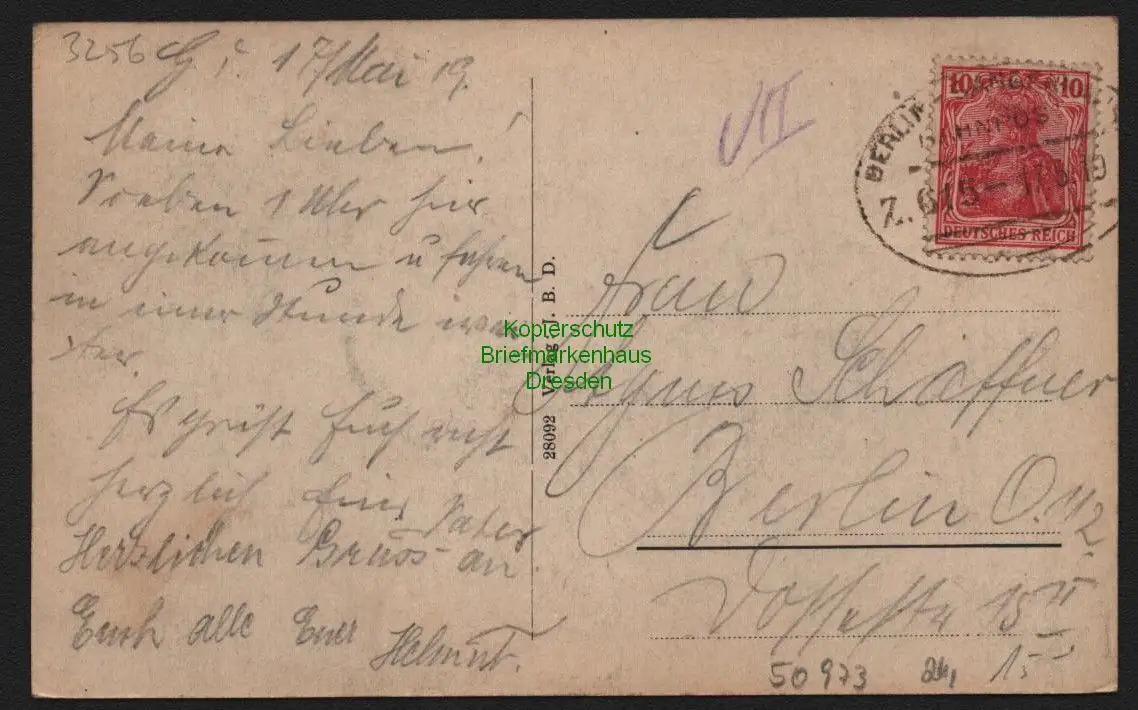 3256
17/Mai 19.
Meine Lieben!
Soeben 1 Uhr hier
angekommen u fahren
in einer Stunde wei
ter.
Es grüßt Euch recht
herzlich Euer Vater
Herzlichen Gruss an
Euch alle Euer
Helmut.
28092 Verlag J. B. D.
VII
BERLIN
BAHNPOST
Z. 615 - 17.5.19
10 10
DEUTSCHES REICH
Frau
Agnes Schaffner
Berlin O. 112.
Dossestr 15 II
50973
15
Kopierschutz
Briefmarkenhaus
Dresden